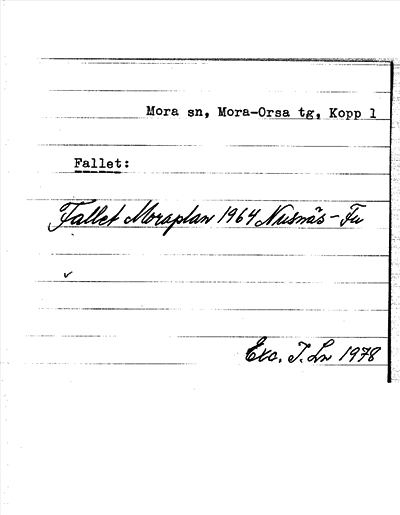 Mora sn, Mora-Orsa tg, Kopp l
Fallet:
Fallet Moraplan 1964 Nusnäs-Fu
Exc. T. Ln 1978